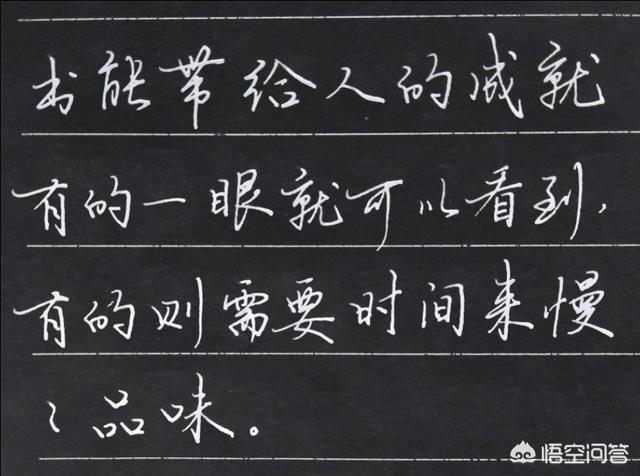 书能带给人的成就
有的一眼就可以看到，
有的则需要时间来慢
〻品味。
悟空问答